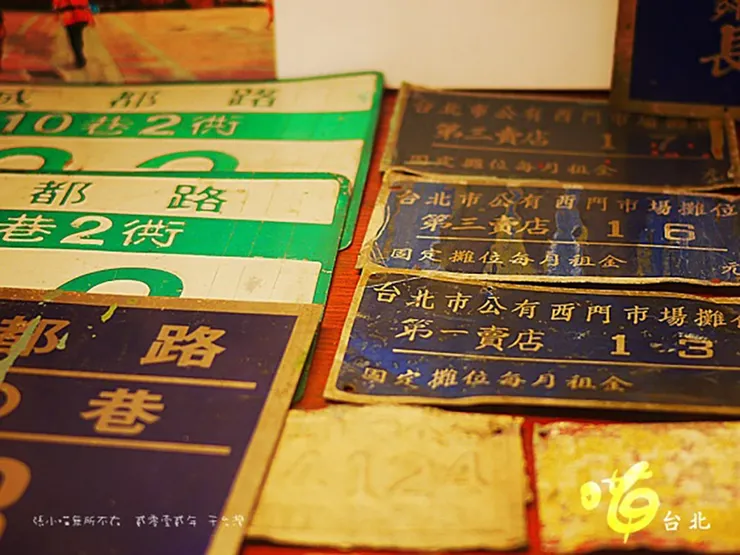 成都路
10巷2衖
都路
巷2衖
都路
巷
台北市公有西門市場攤位
第三賣店 1 7 1
固定攤位每月租金
台北市公有西門市場攤位
第三賣店 1 6
固定攤位每月租金 元
台北市公有西門市場攤
第一賣店 1 3
固定攤位每月租金
長
張小喵無所不在 貳零壹貳年 于台灣
喵台北